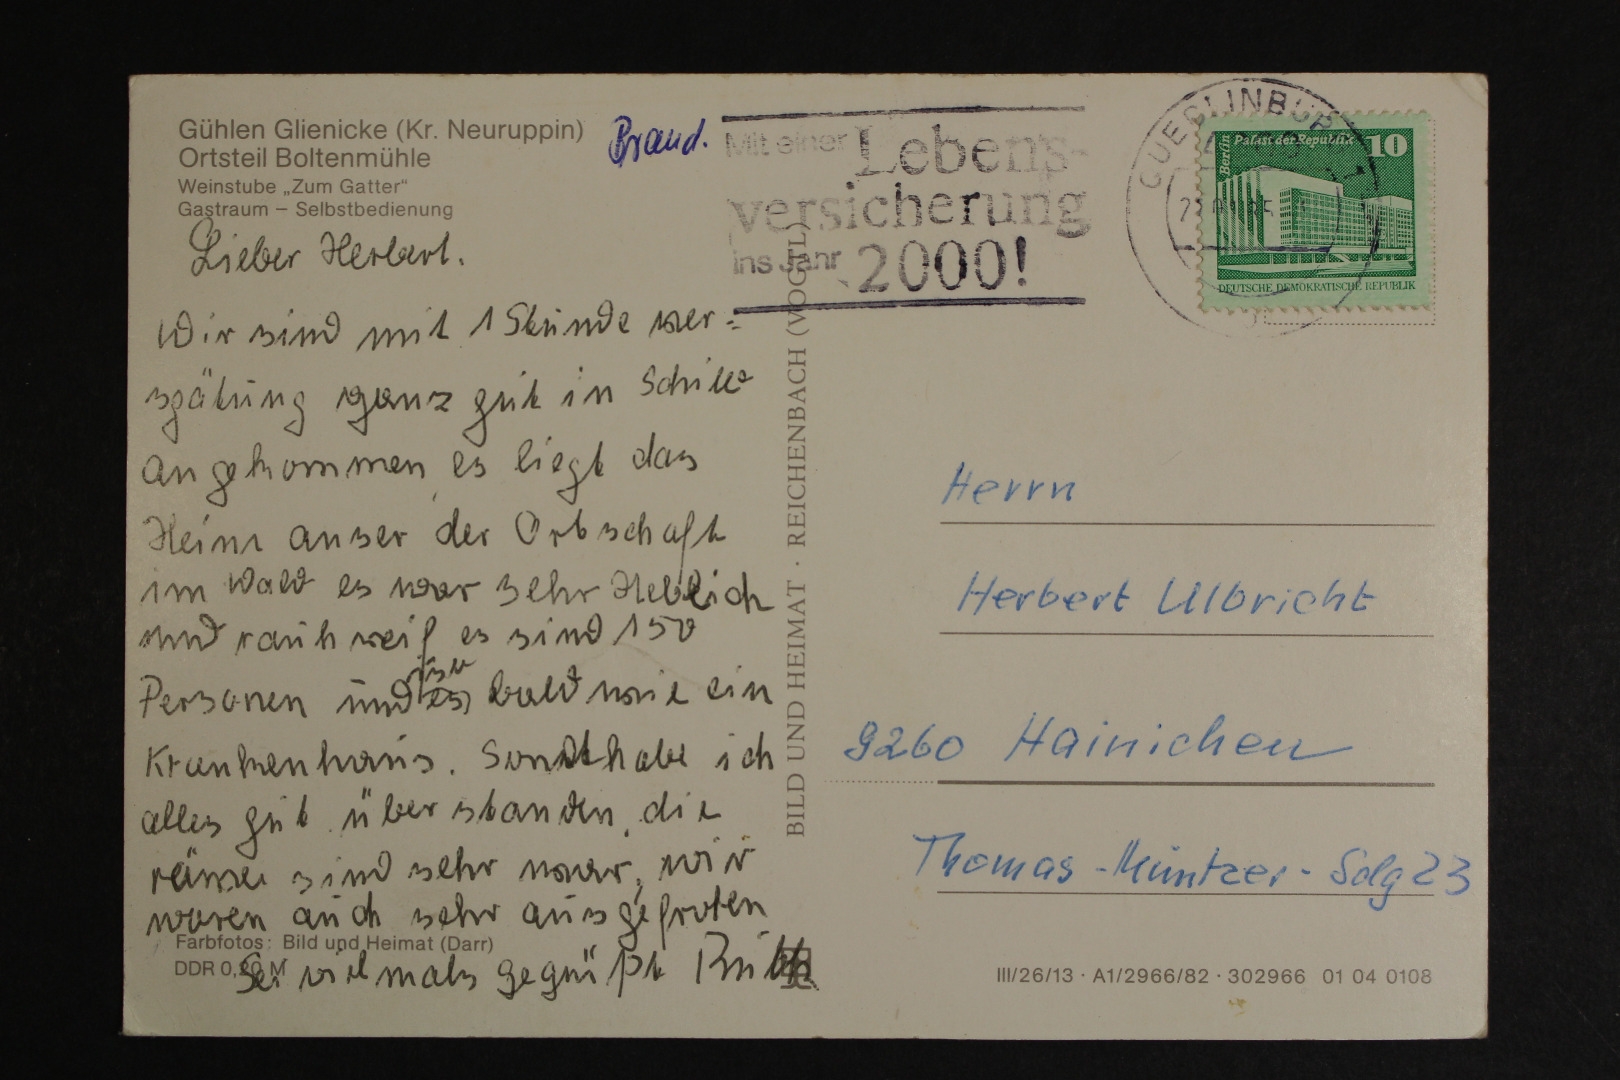 Gühlen Glienicke (Kr. Neuruppin)
Ortsteil Boltenmühle
Weinstube „Zum Gatter“
Gastraum – Selbstbedienung
Brand.
Mit einer Lebens-
versicherung
ins Jahr 2000!
QUEDLINBURG
Berlin Palast der Republik 10
DEUTSCHE DEMOKRATISCHE REPUBLIK
Lieber Herbert.
Wir sind mit 1 Stunde ver=
spätung ganz gut in
angekommen, es liegt das
Heim auser der Ortschaft
im Wald es war sehr
und rauh weil es sind 150
Personen und es bald wie ein
Krankenhaus. Sonst habe ich
alles gut überstanden, die
sind sehr, wir
waren auch sehr ausgefroren
Sei vielmals gegrüßt Ruth
BILD UND HEIMAT · REICHENBACH (VOGTL)
Herrn
Herbert Ulbricht
9260 Hainichen
Thomas-Müntzer-Sdlg 23
Farbfotos: Bild und Heimat (Darr)
DDR 0,20 M
III/26/13 · A1/2966/82 · 302966 01 04 0108